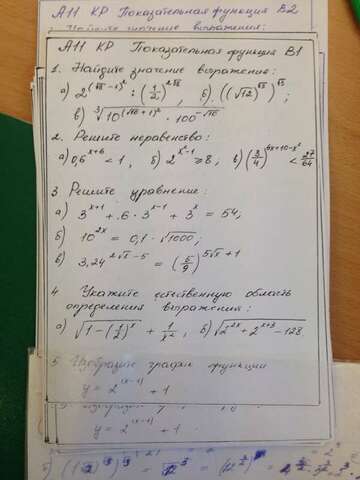 А11 КР Показательная функция В2
А11 КР Показательная функция В1
1. Найдите значение выражение:
а) 2^((√5-1)²) : (1/2)^(2√5), б) ((√12)^√3)^√3;
в) ∛(10^((√6+1)²) · 100^(-√6))
2. Решите неравенство:
а) 0,6^(x+6) < 1, б) 2^(x²-1) ≥ 8; в) (3/4)^(6x+10-x²) < 27/64
3 Решите уравнение:
а) 3^(x+1) + 6 · 3^(x-1) + 3^x = 54;
б) 10^(2x) = 0,1 · √1000;
в) 3,24^(2√x-5) = (5/9)^(5√x+1)
4 Укажите естественную область
определения выражения:
а) √(1-(1/2)^x) + 1/x², б) √(2^(2x) + 2^(x+3) - 128
5 Изобразите график функции
y = 2^(|x-1|) + 1
y = 2^(|x-1|) + 1